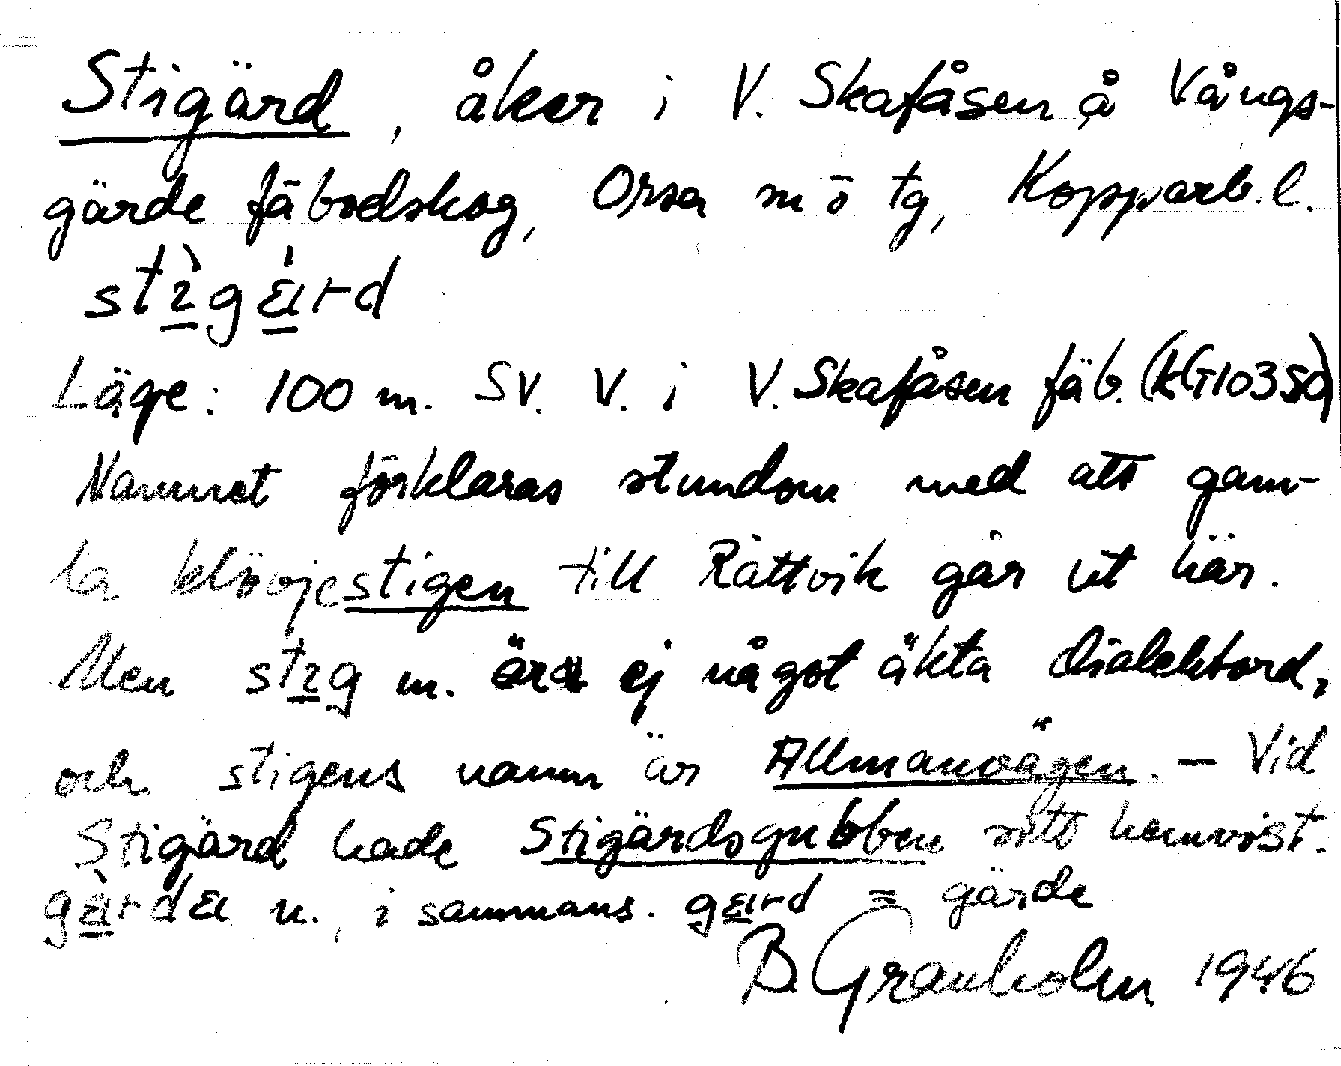 Stigärd, åker i V. Skafåsen å Vångs-
gärde fäbodskog, Orsa sn o tg, Kopparb. l.
Läge: 100 m. SV. V. i V. Skafåsen fäb. (KG10350)
Namnet förklaras stundom med att gam-
la klövjestigen till Rättvik går ut här.
Men stig m. är ej något äkta dialektord,
och stigens namn är Allmanvägen. – Vid
Stigärd hade Stigärdsgubben sitt hemvist.
n., i sammans. = gärde
B Granholm 1946